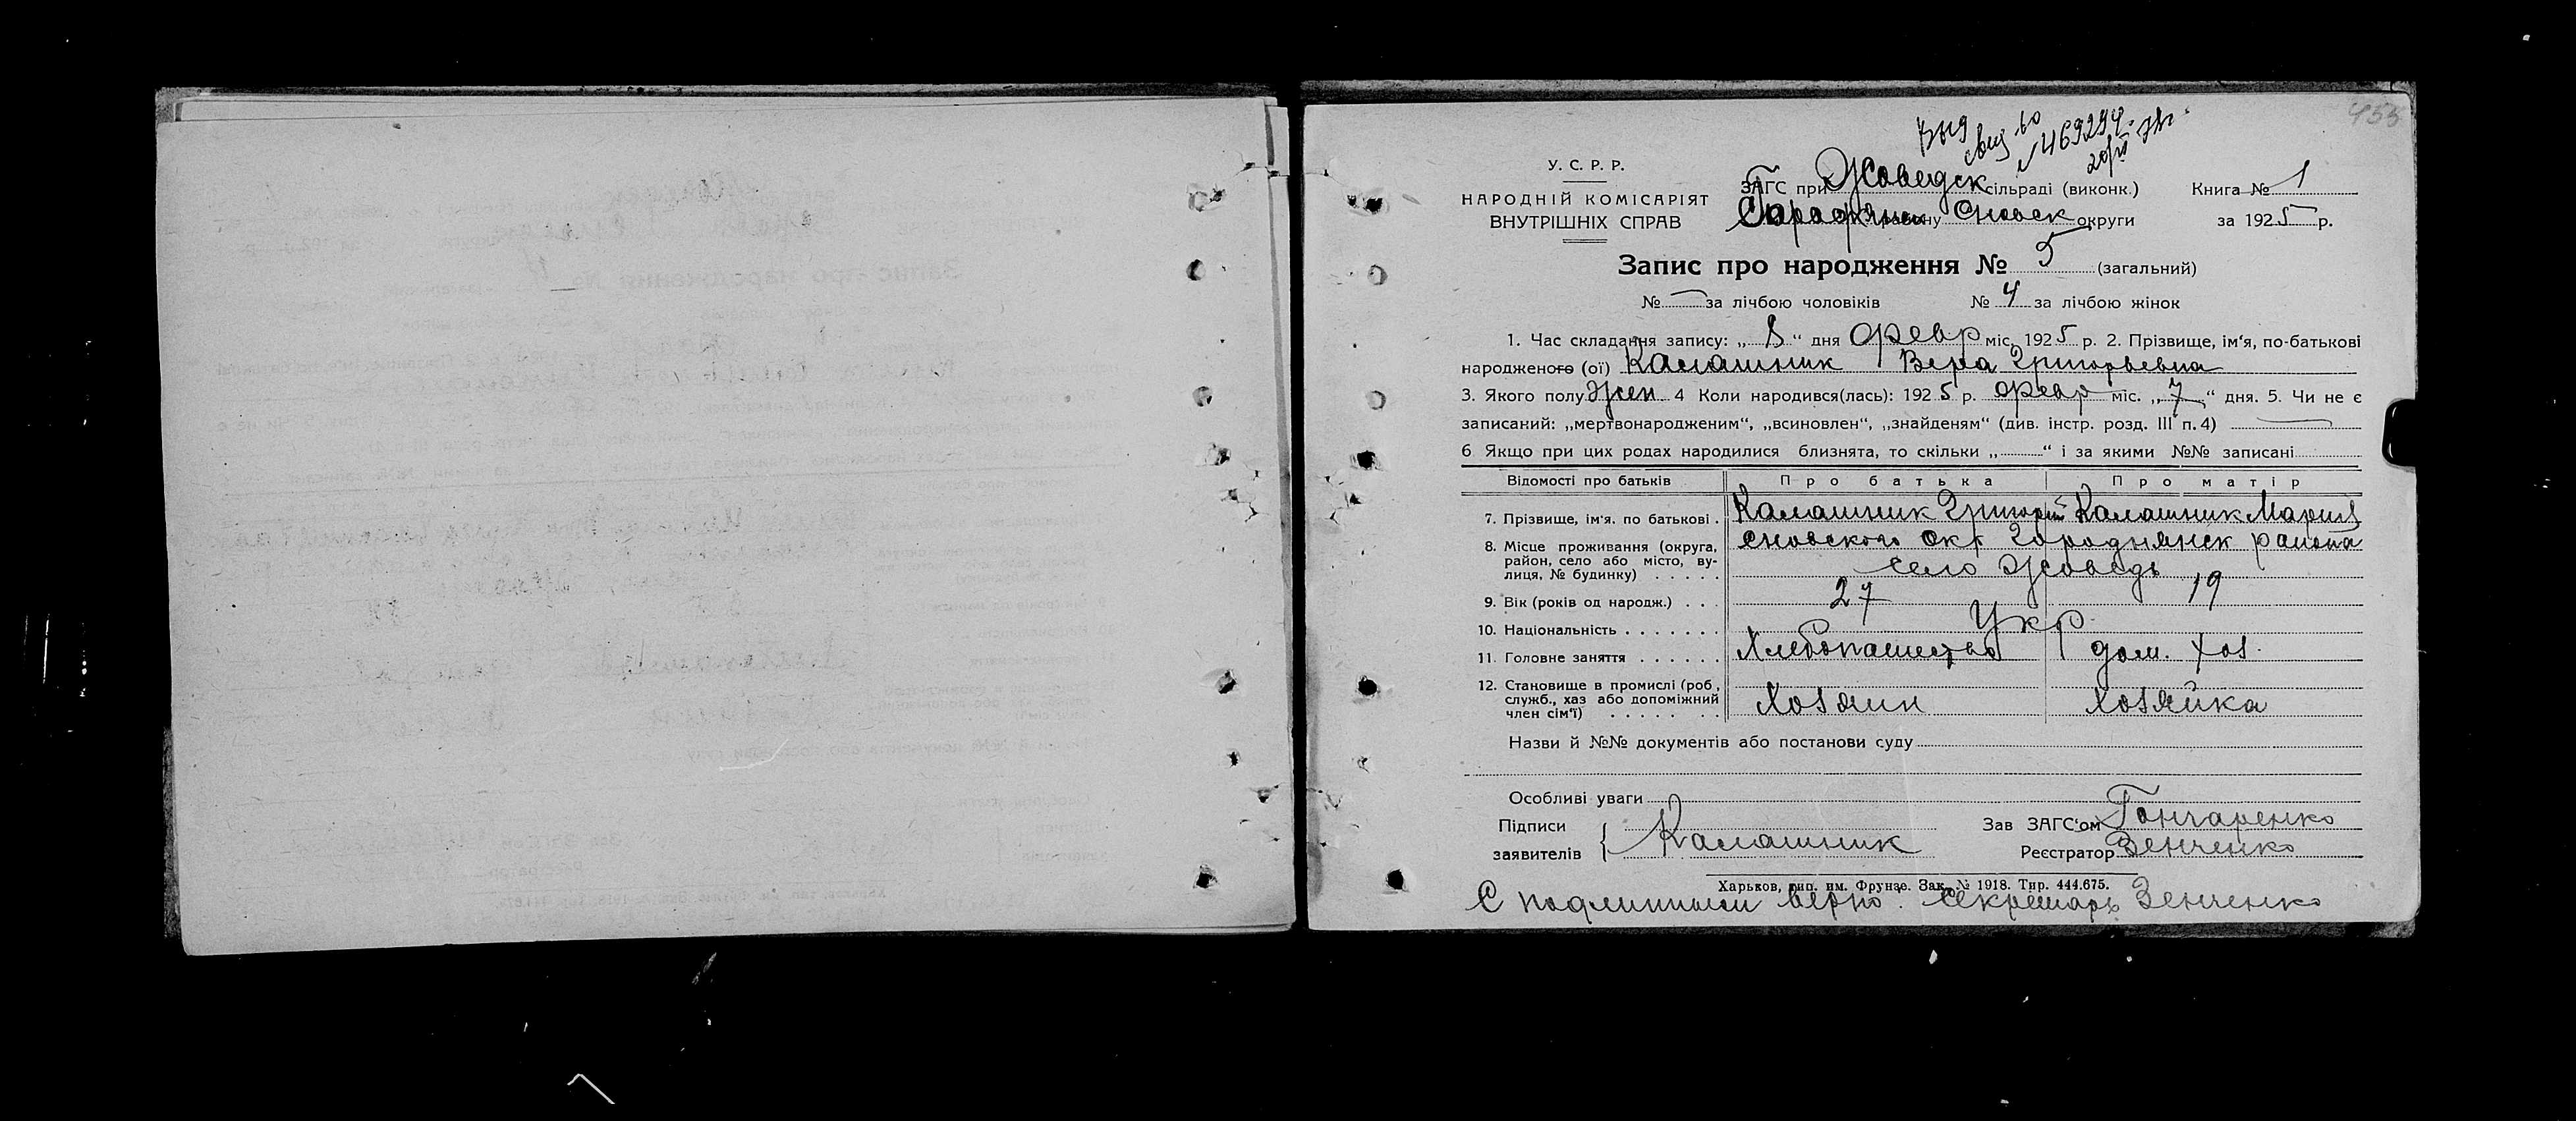 455
У. С. Р. Р.
НАРОДНІЙ КОМІСАРІЯТ
ВНУТРІШНІХ СПРАВ
Выд свид по
№ 469294
ЗАГС при Жоведск сільраді (виконк.) Книга № 1
Городнянск району Сновск округи за 1925 р.
Запис про народження № 5 (загальний)
№ — за лічбою чоловіків № 4 за лічбою жінок
1. Час складання запису: „ 8 “ дня февр міс. 1925 р. 2. Прізвище, ім‘я, по-батькові
народженого (ої) Калашник Вера Григорьевна
3. Якого полу Жен. 4 Коли народився(лась): 1925 р. февр міс. „ 7 “ дня. 5. Чи не є
записаний: „мертвонародженим“, „всиновлен“, „знайденям“ (див. інстр. розд. III п. 4) —
6 Якщо при цих родах народилися близнята, то скільки „ “ і за якими №№ записані
Відомості про батьків Про батька Про матір
7. Прізвище, ім‘я. по батькові . Калашник Григорий Калашник Мария
8. Місце проживання (округа, Сновского окр Городнянск района
район, село або місто, ву-
лиця, № будинку) . . . . . село Жоведь
9. Вік (років од народж.) . . . 27 19
10. Національність . . . . . . . Укр
11. Головне заняття . . . . . . Хлебопашество дом. хоз.
12. Становище в промислі (роб.,
служб., хаз або допоміжний Хозяин Хозяйка
член сім‘ї) . . . . . . .
Назви й №№ документів або постанови суду
Особливі уваги
Підписи Зав ЗАГС‘ом Гончаренко
заявителів Калашник Реєстратор Зенченко
Харьков, тип. им. Фрунзе. Зак. № 1918. Тир. 444.675.
С подлинным верно: Секретарь Зенченко